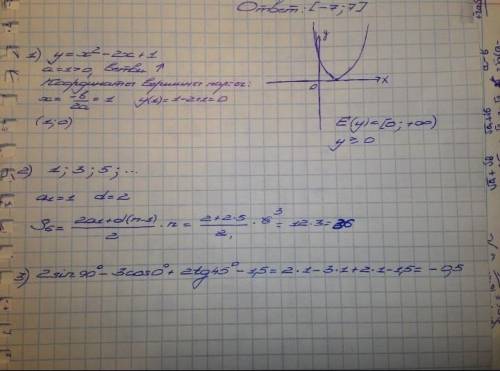 Ответ: [-7; 7]
1) y=x²-2x+1
a=1>0, ветви ↑
Координаты вершины параб:
x= -b/2a = 1 y(1)=1-2+1=0
(1; 0)
y
0
x
E(y)=[0; +∞)
y≥0
2) 1; 3; 5; ...
a₁=1 d=2
S₆= 2a₁+d(n-1)/2 · n = 2+2·5/2 · 6 ³ = 12·3=36
3) 2sin90°-3cos0°+2tg45°-1,5=2·1-3·1+2·1-1,5= -0,5